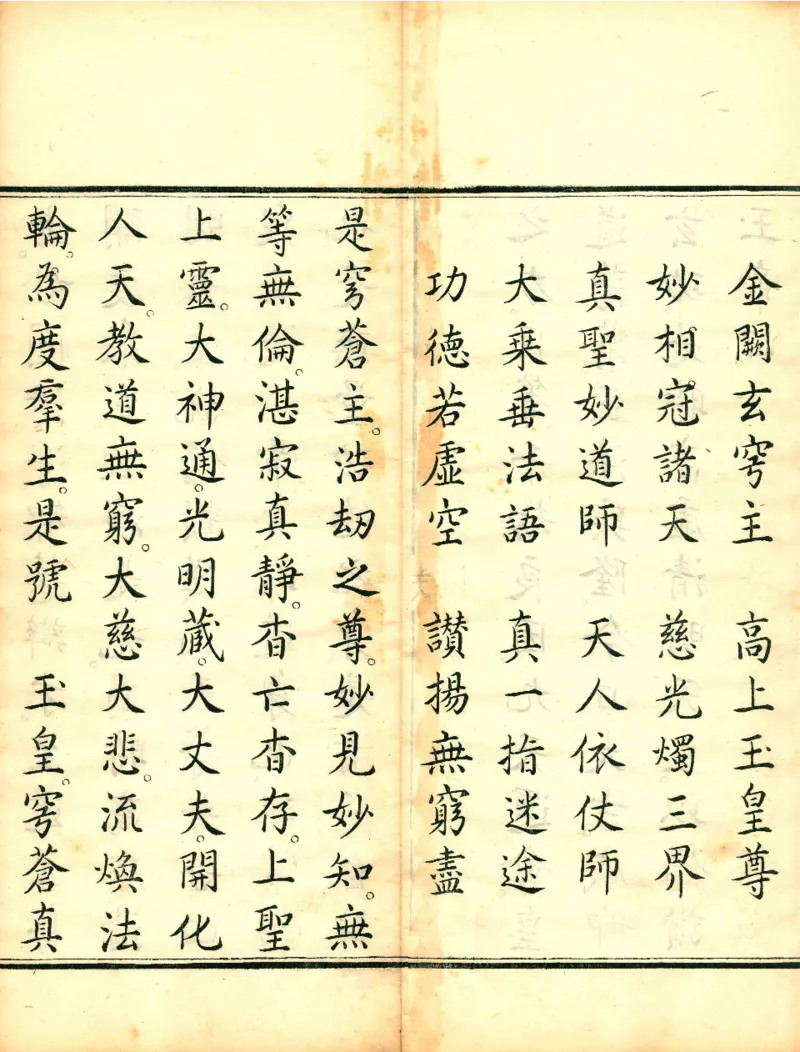 金闕玄穹主　高上玉皇尊
妙相冠諸天　慈光燭三界
真聖妙道師　天人依仗師
大乘垂法語　真一指迷途
功德若虛空　讚揚無窮盡
是穹蒼主。浩刼之尊。妙見妙知。無
等無倫。湛寂真靜。杳亡杳存。上聖
上靈。大神通。光明藏。大丈夫。開化
人天。教道無窮。大慈大悲。流煥法
輪。為度羣生。是號　玉皇。穹蒼真